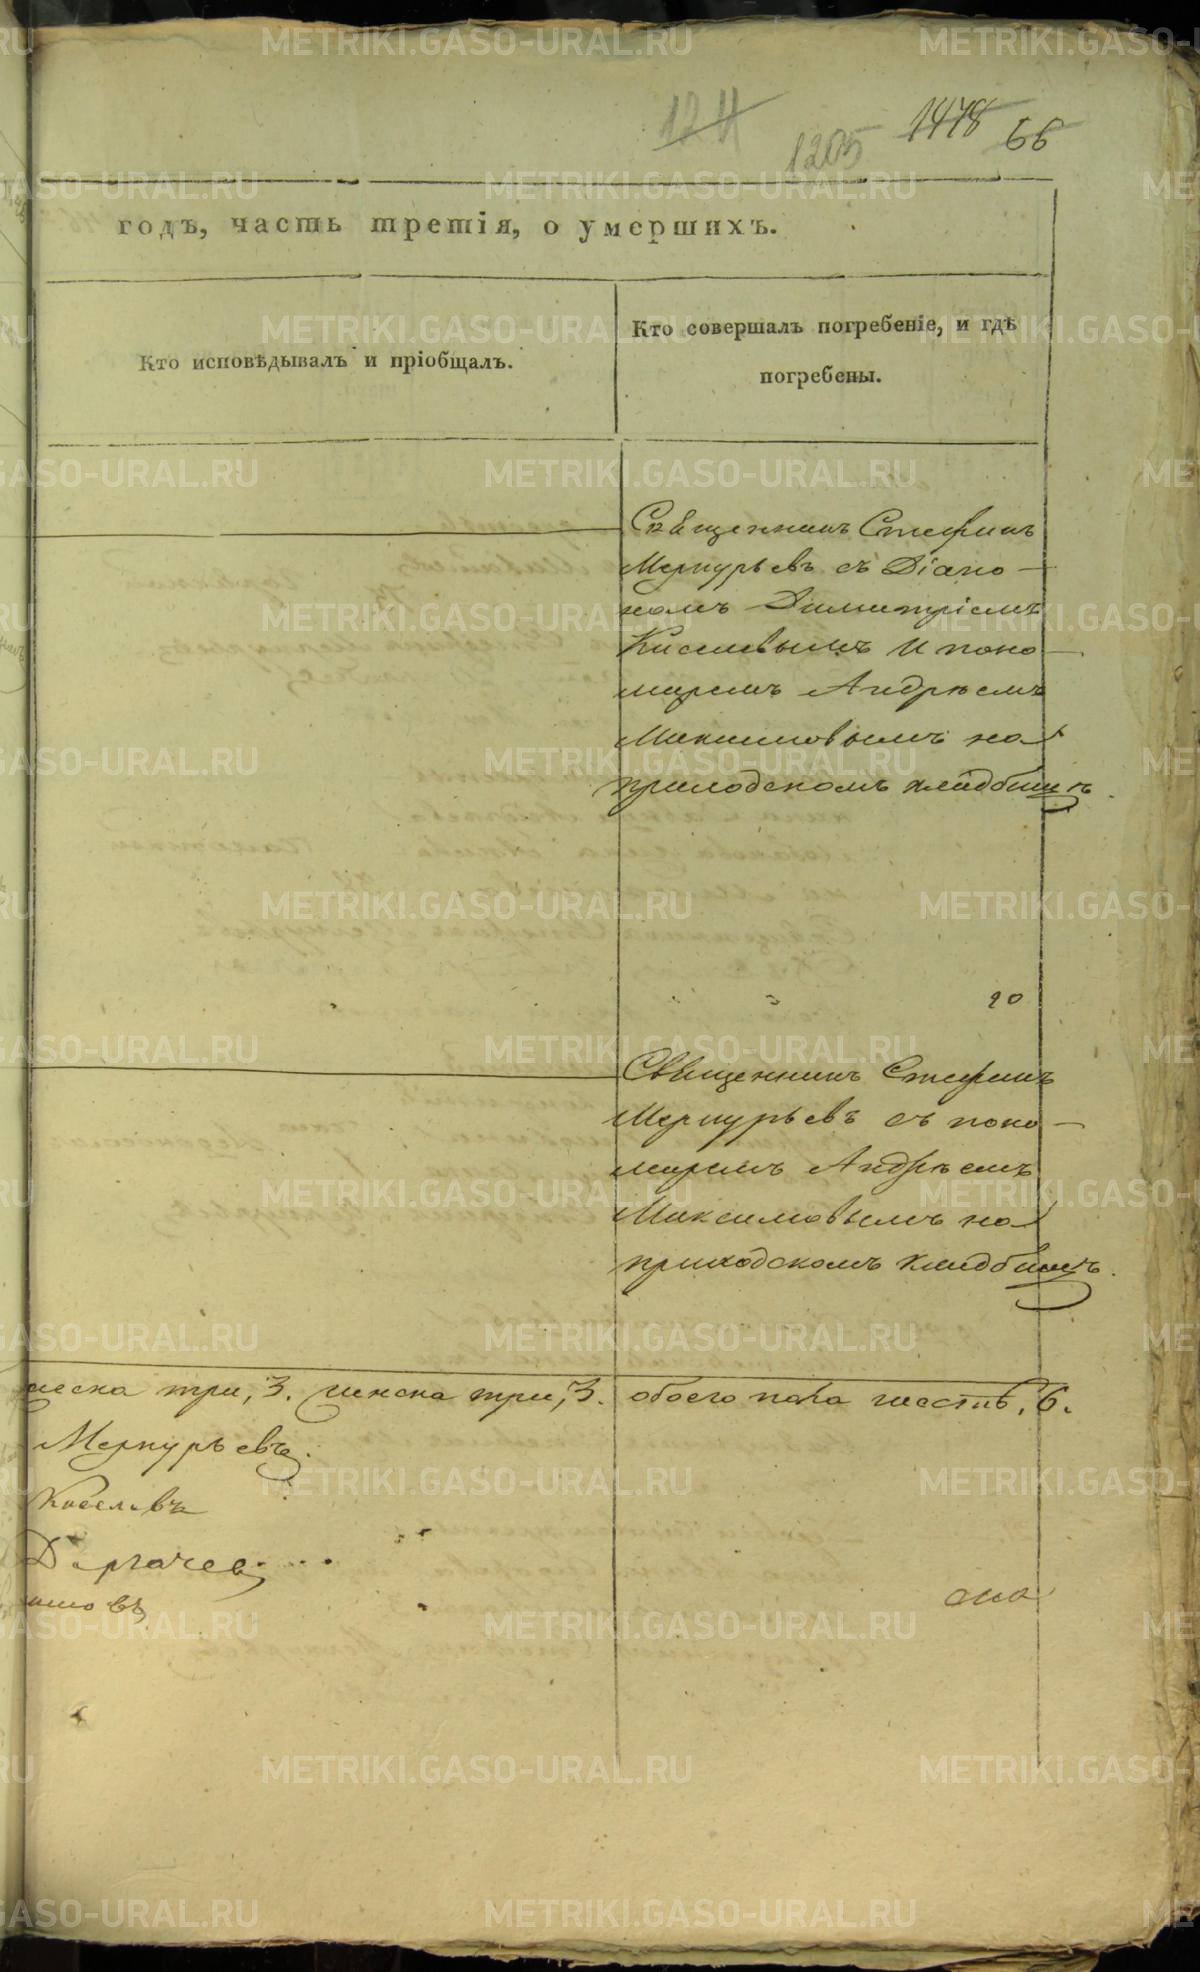 1205 1478 66
годъ, часть третія, о умершихъ.
Кто исповѣдывалъ и пріобщалъ.
Кто совершалъ погребеніе, и гдѣ
погребены.
Священникъ Стефанъ
Меркурьевъ съ Діако-
номъ Димитріемъ
Киселевымъ и поно-
маремъ Андреемъ
Максимовымъ на
приходскомъ кладбищѣ.
20
Священникъ Стефанъ
Меркурьевъ съ поно-
маремъ Андреемъ
Максимовымъ на
приходскомъ кладбищѣ.
три, 3. женска три, 3. обоего пола шесть, 6.
Меркурьевъ.
Киселевъ
METRIKI.GASO-URAL.RU